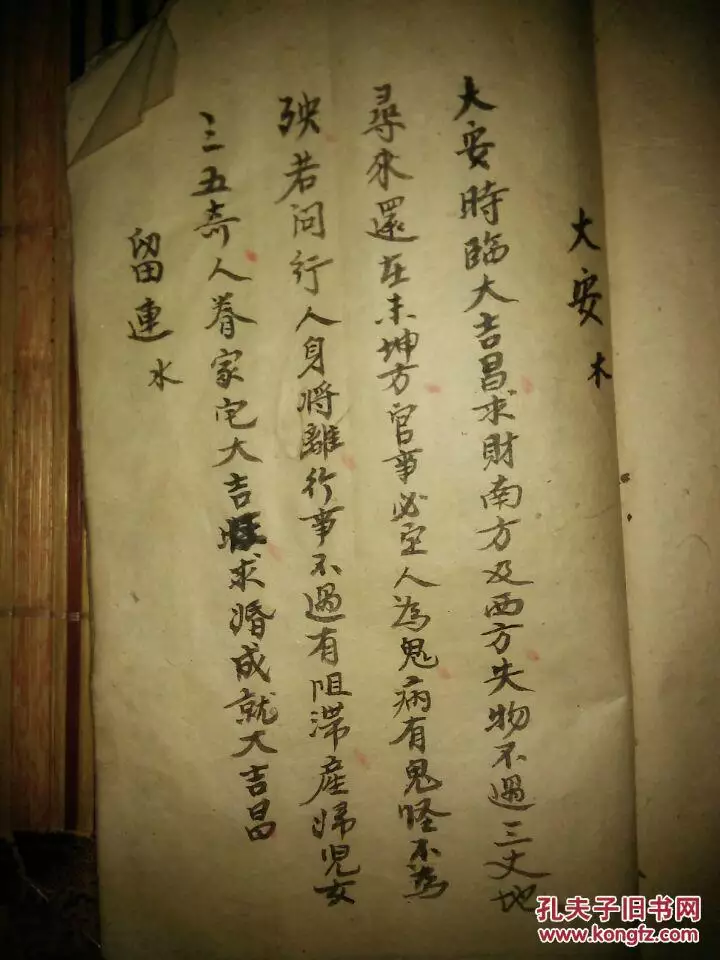 大安 木
大安時臨大吉昌求財南方及西方失物不過三丈地
尋來還在未坤方官事必定人為鬼病有鬼怪不為
殃若問行人身將離行事不過有阻滯產婦兒女
三五奇人眷家宅大吉旺求婚成就大吉昌
留連 水
孔夫子旧书网
www.kongfz.com